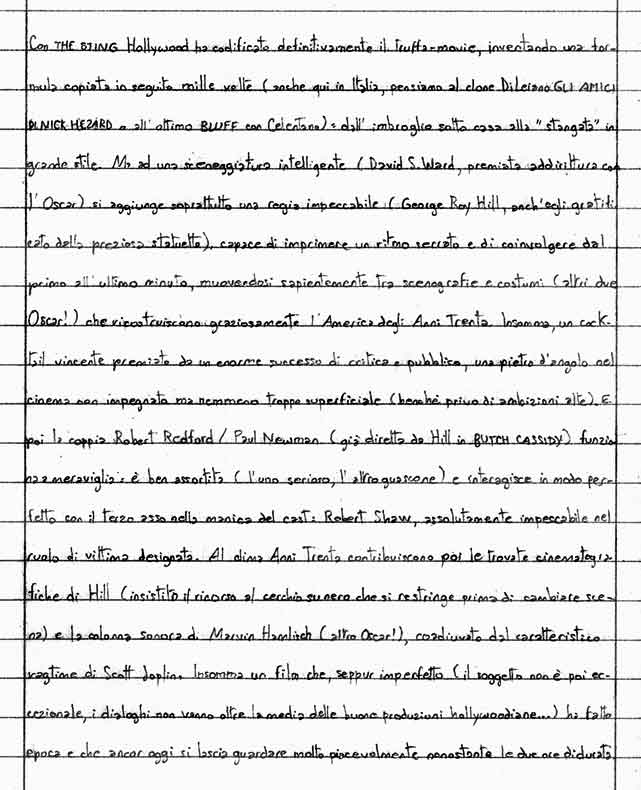 Con THE STING Hollywood ha codificato definitivamente il truffa-movie, inventando una for-
mula copiata in seguito mille volte (anche qui in Italia, pensiamo al clone Di Leiano GLI AMICI
DI NICK HEZARD o all'ottimo BLUFF con Celentano): dall'imbroglio sotto casa alla "stangata" in
grande stile. Ma ad una sceneggiatura intelligente (David S. Ward, premiata addirittura con
l'Oscar) si aggiunge soprattutto una regia impeccabile (George Roy Hill, anch'egli gratifi
cato della preziosa statuetta), capace di imprimere un ritmo serrato e di coinvolgere dal
primo all'ultimo minuto, muovendosi sapientemente tra scenografie e costumi (altri due
Oscar!) che ricostruiscono graziosamente l'America degli Anni Trenta. Insomma, un cock-
tail vincente premiato da un enorme successo di critica e pubblico, una pietra d'angolo nel
cinema non impegnato ma nemmeno troppo superficiale (benché privo di ambizioni alte). E
poi la coppia Robert Redford / Paul Newman (già diretta da Hill in BUTCH CASSIDY) funzio
na a meraviglia: è ben assortita (l'uno serioso, l'altro guascone) e interagisce in modo per-
fetto con il terzo asso nella manica del cast: Robert Shaw, assolutamente impeccabile nel
ruolo di vittima designata. Al clima Anni Trenta contribuiscono poi le trovate cinematogra
fiche di Hill (insistito il ricorso al cerchio su nero che si restringe prima di cambiare sce-
na) e la colonna sonora di Marvin Hamlisch (altro Oscar!), coadiuvato dal caratteristico
ragtime di Scott Joplin. Insomma un film che, seppur imperfetto (il soggetto non è poi ec-
cezionale, i dialoghi non vanno oltre la media delle buone produzioni hollywoodiane...) ha fatto
epoca e che ancor oggi si lascia guardare molto piacevolmente nonostante le due ore di durata.